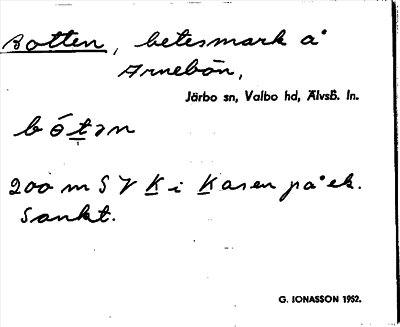 Botten, betesmark å
Arnebön,
Järbo sn, Valbo hd, Älvsb. ln.
bótən
200 m S V K i Kasen på ek.
Sankt.
G. IONASSON 1952.